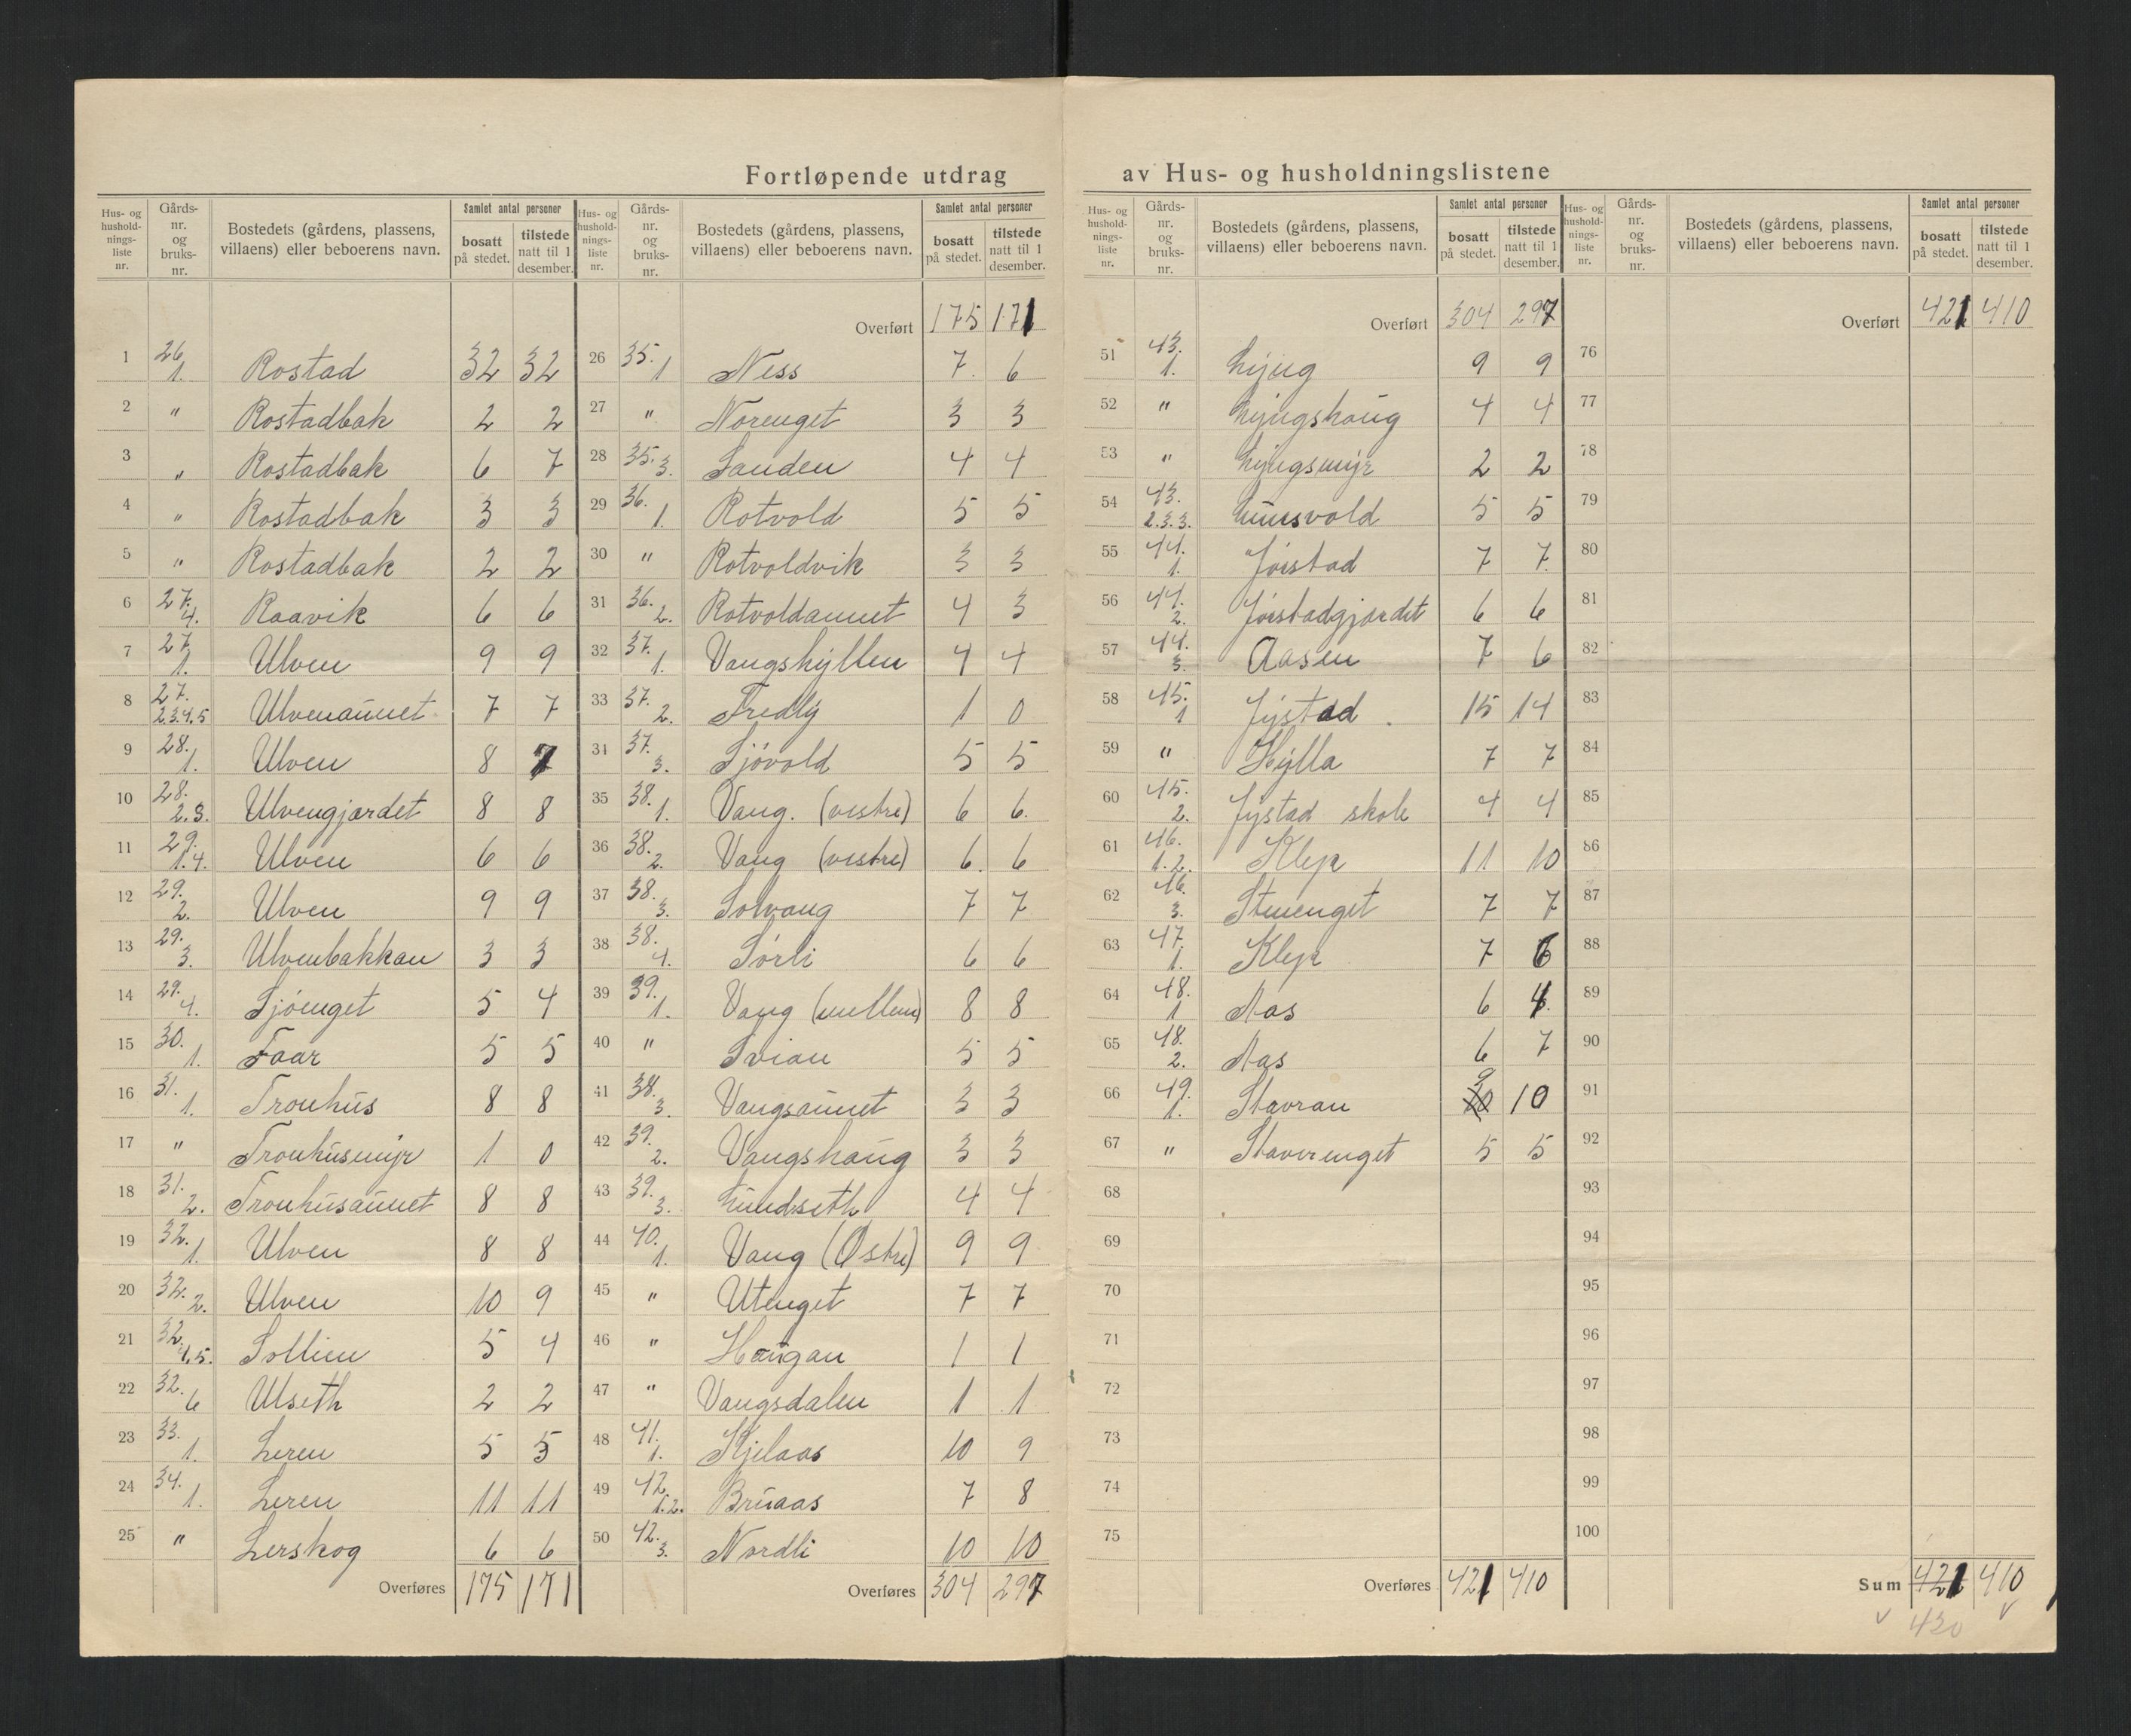 Fortløpende utdrag av Hus- og husholdningslistene
Hus- og hushold-nings-liste nr. Gårds-nr. og bruks-nr. Bostedets (gårdens, plassens, villaens) eller beboerens navn. Samlet antal personer bosatt på stedet. tilstede natt til 1 desember.
1 26. 1. Rostad 32 32
2 " Rostadbak 2 2
3 " Rostadbak 6 7
4 " Rostadbak 3 3
5 " Rostadbak 2 2
6 27. 4. Raavik 6 6
7 27. 1. Ulven 9 9
8 27. 2.3.4.5 Ulvenaunet 7 7
9 28. 1. Ulven 8 7
10 28. 2.3. Ulvengjærdet 8 8
11 29. 1.4. Ulven 6 6
12 29. 2. Ulven 9 9
13 29. 3. Ulvenbakkan 3 3
14 29. 4. Sjöenget 5 4
15 30. 1. Faar 5 5
16 31. 1. Tronhus 8 8
17 " Tronhusmyr 1 0
18 31. 2. Tronhusaunet 8 8
19 32. 1. Ulven 8 8
20 32. 2. Ulven 10 9
21 32. 4.5. Sollien 5 4
22 32. 6 Ulseth 2 2
23 33. 1. Leren 5 5
24 34. 1. Leren 11 11
25 " Lerskog 6 6
Overføres 175 171
Hus- og hushold-nings-liste nr. Gårds-nr. og bruks-nr. Bostedets (gårdens, plassens, villaens) eller beboerens navn. Samlet antal personer bosatt på stedet. tilstede natt til 1 desember.
Overført 175 171
26 35. 1 Ness 7. 6
27 " Norenget 3 3
28 35. 3. Sanden 4 4
29 36. 1. Rotvold 5 5
30 " Rotvoldvik 3 3
31 36. 2. Rotvoldaunet 4 3
32 37. 1. Vangshyllen 4 4
33 37. 2. Fredly 1 0
34 37. 3. Sjövold 5 5
35 38. 1. Vang. (vestre) 6 6.
36 38. 2. Vang (vestre) 6. 6
37 38. 3. Solvang 7 7
38 38. 4. Sörli 6 6
39 39. 1. Vang (mellem) 8 8
40 " Svian 5 5
41 38. 3. Vangsaunet 3 3
42 39. 2. Vangshaug 3 3
43 39. 3. Lundseth 4 4
44 40. 1. Vang (Østre) 9 9
45 " Utenget 7 7
46 " Haugan 1 1
47 " Vangsdalen 1 1
48 41. 1. Kjelaas 10 9
49 42. 1.2. Bruaas 7 8
50 42. 3. Nordli 10 10
Overføres 304 297
Hus- og hushold-nings-liste nr. Gårds-nr. og bruks-nr. Bostedets (gårdens, plassens, villaens) eller beboerens navn. Samlet antal personer bosatt på stedet. tilstede natt til 1 desember.
Overført 304 297
51 43. 1. Lyng 9 9
52 " Lyngshaug 4 4
53 " Lyngsmyr 2 2
54 43. 2.3.3. 5 5
55 44. 1. Jörstad 7 7.
56 44. 2. Jörstadgjærdet 6 6
57 44. 3. Aasen 7 6
58 45. 1 Jystad 15 14
59 " Hylla 7 7
60 45. 2. Jystad skole 4 4
61 46. 1.2. Klep 11 10
62 46. 3. Stenenget 7 7
63 47. 1. Klep 7 6
64 48. 1 Aas 6 4
65 48. 2. Aas 6 7
66 49. 1. Stavran 9 10
67 " Staverenget 5 5
68
69
70
71
72
73
74
75
Overføres 421 410
Hus- og hushold-nings-liste nr. Gårds-nr. og bruks-nr. Bostedets (gårdens, plassens, villaens) eller beboerens navn. Samlet antal personer bosatt på stedet. tilstede natt til 1 desember.
Overført 421 410
76
77
78
79
80
81
82
83
84
85
86
87
88
89
90
91
92
93
94
95
96
97
98
99
100
Sum 421 410
420